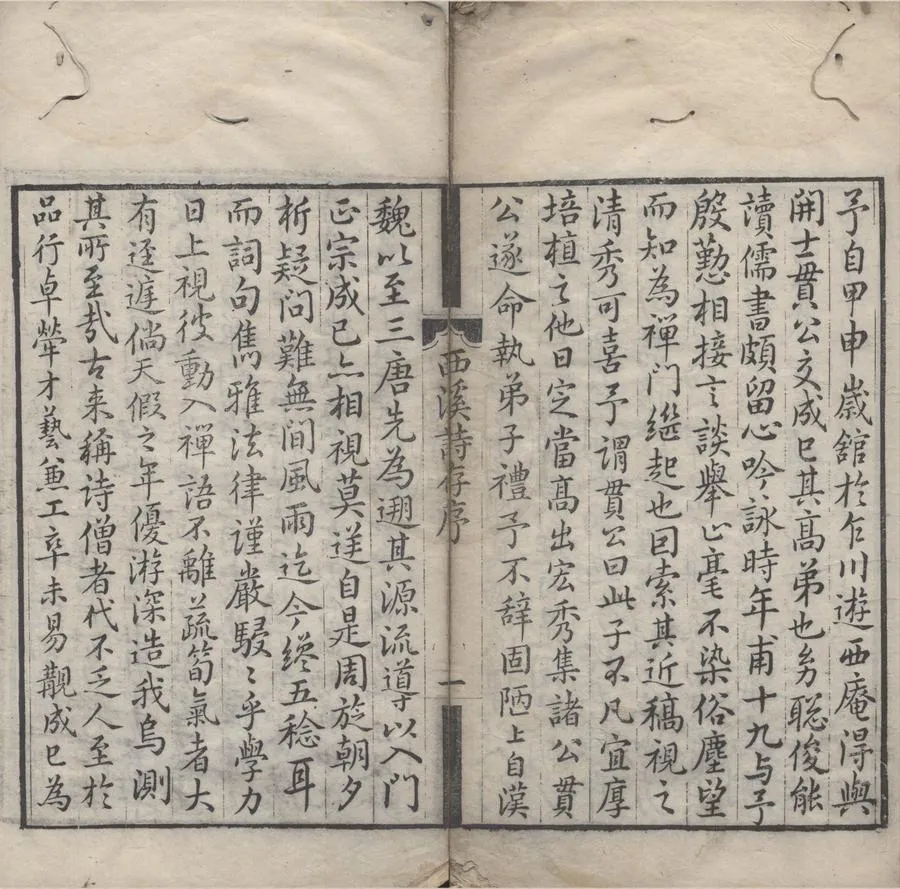 予自甲申歲舘於乍川遊西庵淂與
開士貫公交成已其髙弟也幼聡俊能
讀儒書頗留心吟詠時年甫十九与予
殷懃相接言談舉止毫不染俗塵望
而知為禪門継起也因索其近稿視之
清秀可喜予謂貫公曰此子不凡宜厚
培植之他日定當髙出宏秀集諸公貫
公遂命執弟子禮予不辞固陋上自漢
西溪詩存序
一
魏以至三唐先為遡其源流導以入門
正宗成已亦相視莫逆自是周旋朝夕
析疑问難無間風雨迄今纔五稔耳
而詞句雋雅法律谨嚴駸〻乎學力
日上視彼動入禪語不離蔬筍氣者大
有逕倘天假之年優游深造我烏測
其所至㢤古来稱詩僧者代不乏人至於
品行卓犖才藝兼工卒未易覯成已為